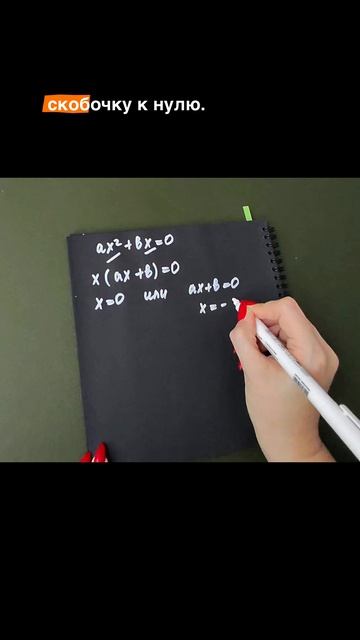 скобочку к нулю.
ax²+bx=0
x(ax+b)=0
x=0 или ax+b=0
x=-